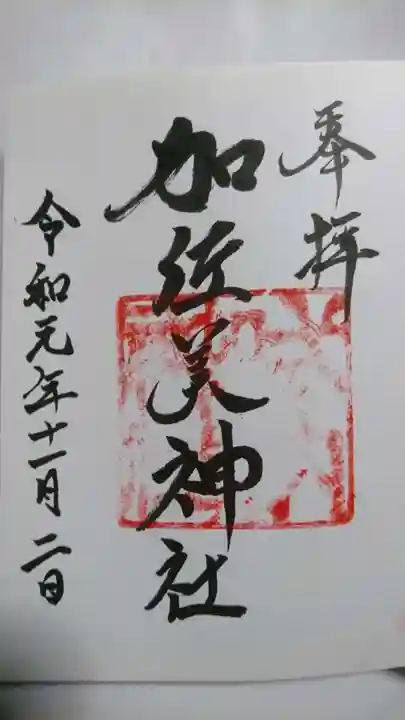 奉拝
加佐美神社
令和元年十一月二日